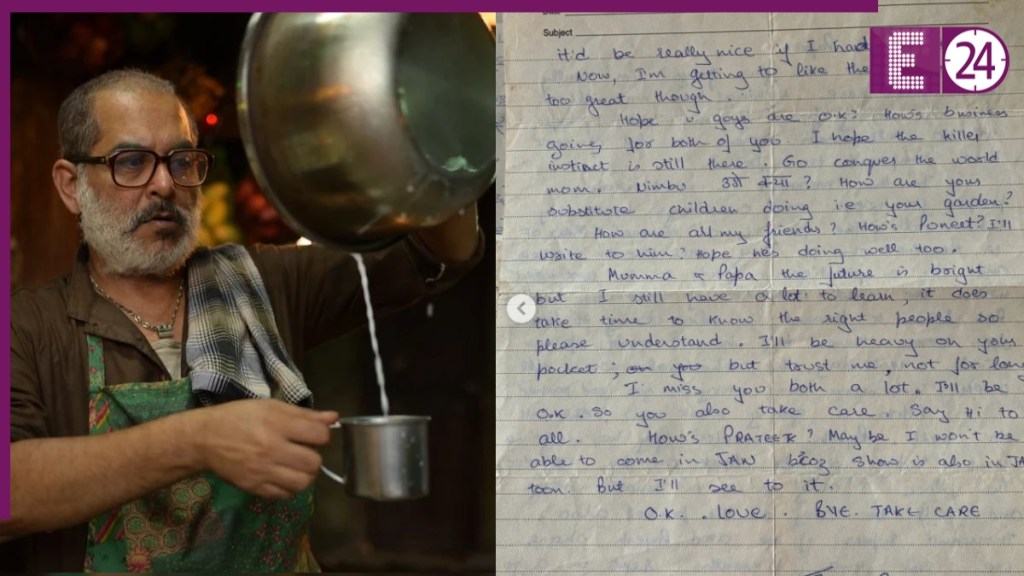 Subject
E 24
it'd be really nice if I had
Now, I'm getting to like the
too great though.
Hope u guys are O.K? How's business
going, for both of you. I hope the killer
instinct is still there. Go conquer the world
mom. Nimbu उगे क्या? How are your
substitute children doing i.e your garden?
How are all my friends? How's Poneet? I'll
write to him? Hope he's doing well too.
Mumma & Papa the future is bright
but I still have a lot to learn, it does
take time to know the right people so
please understand. I'll be heavy on your
pocket; but trust me, not for long
I miss you both a lot. I'll be
O.K. So you also take care. Say Hi to
all. How's PRATEEK? May be I won't be
able to come in JAN bcoz show is also in JA
toon. But I'll see to it.
O.K. . LOVE . BYE. TAKE CARE